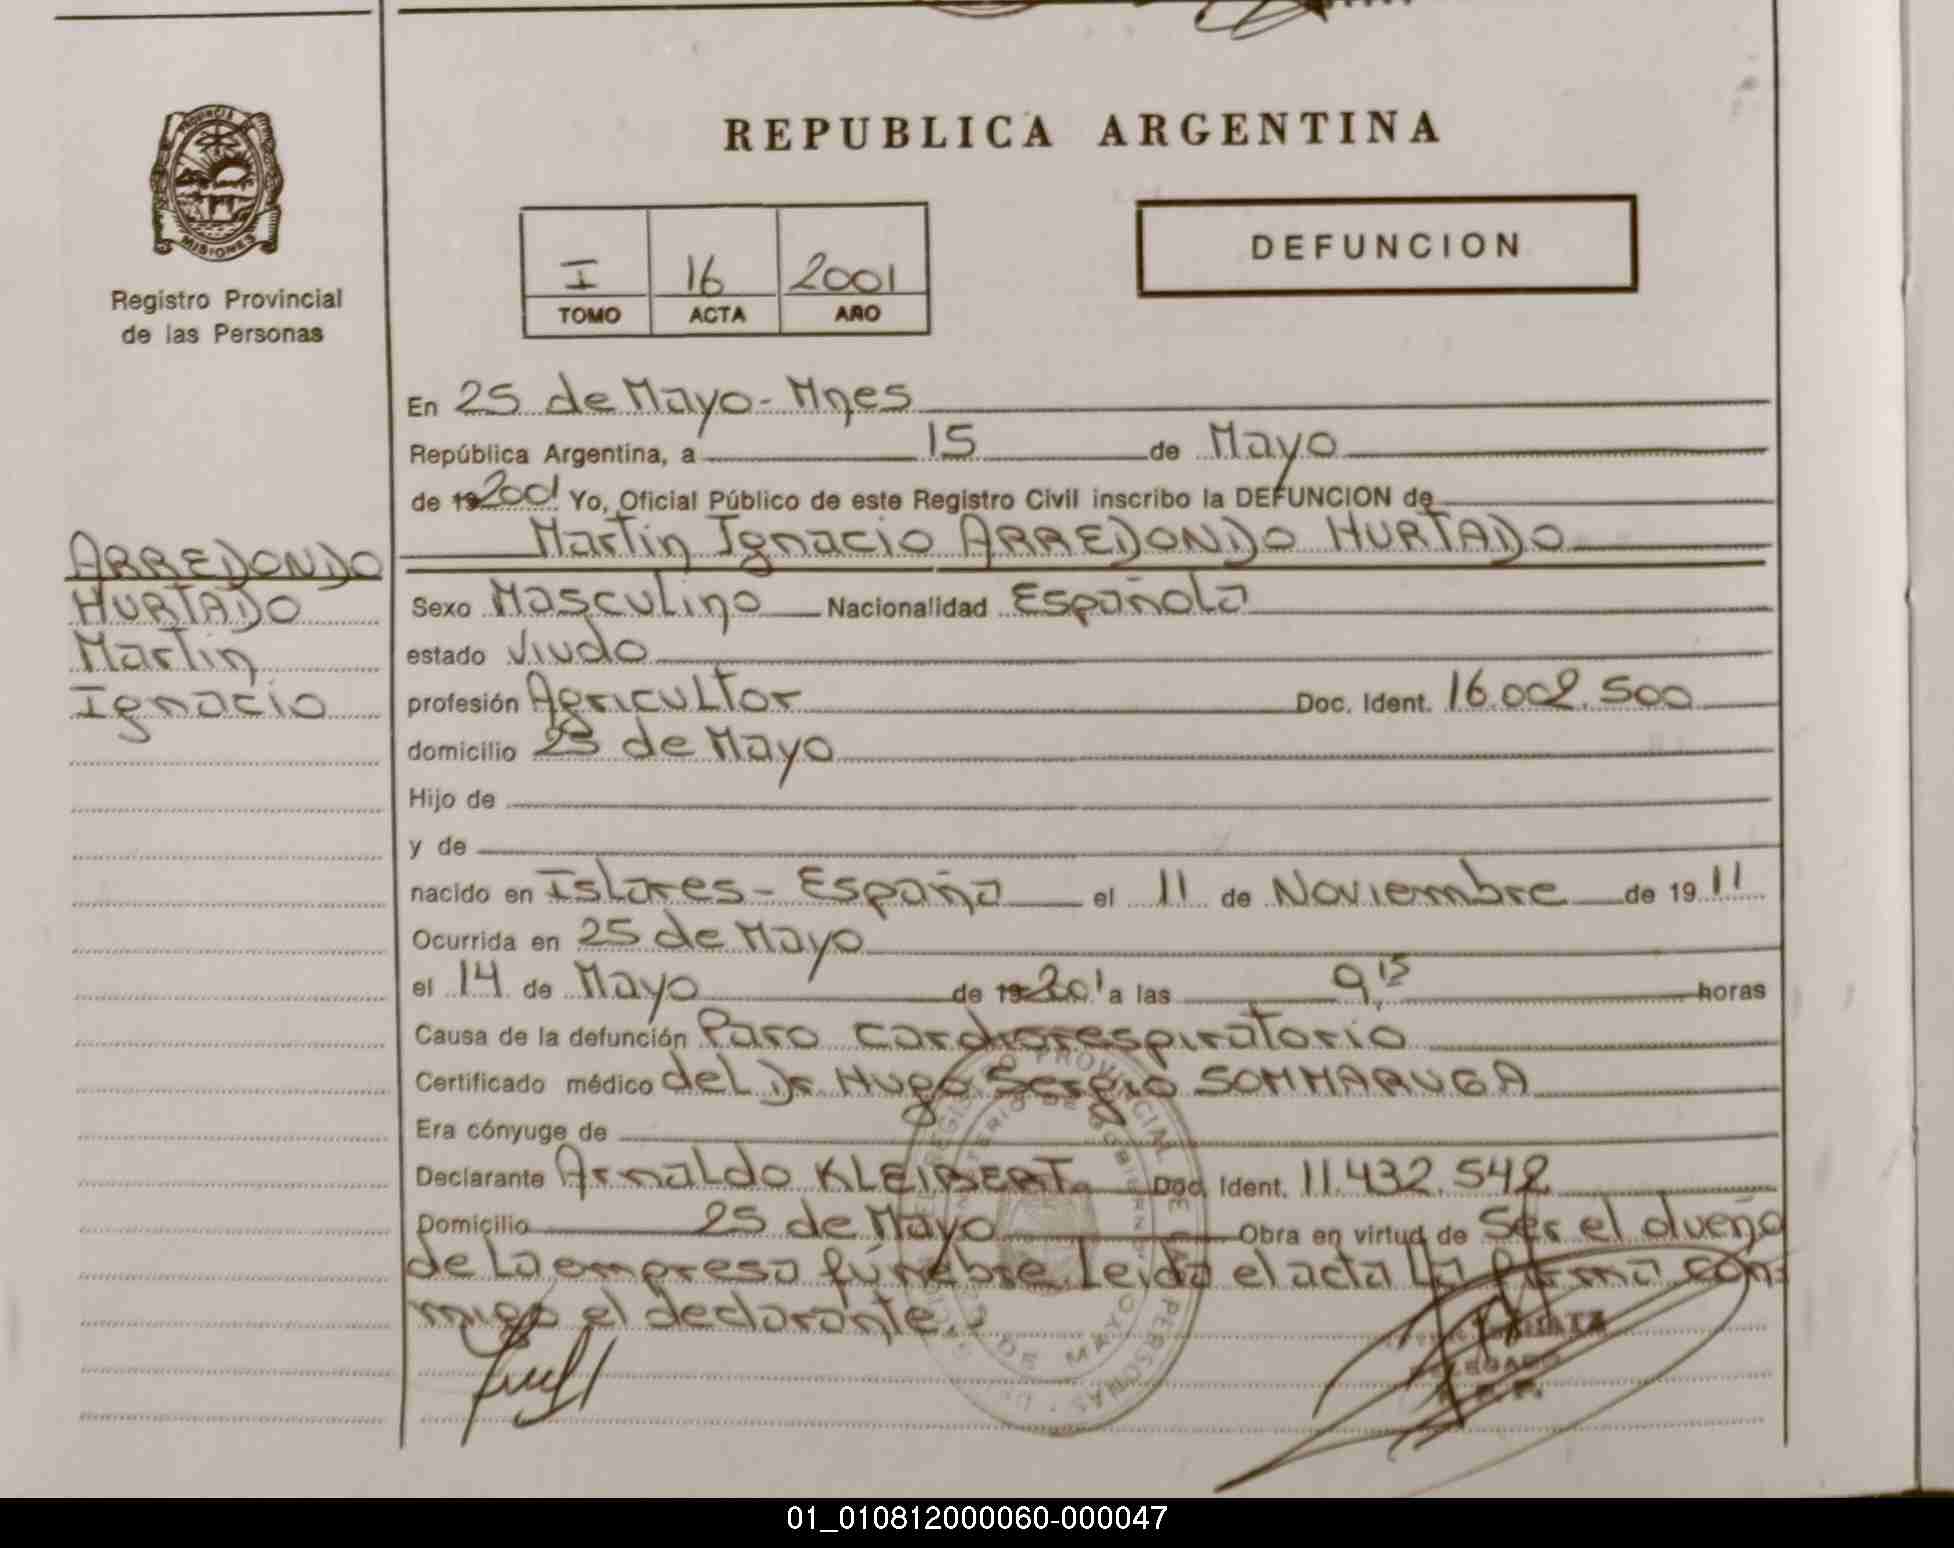 REPUBLICA ARGENTINA
PROVINCIA DE
MISIONES
Registro Provincial
de las Personas
I 16 2001
TOMO ACTA AÑO
DEFUNCION
En 25 de Mayo - Mnes
República Argentina, a 15 de Mayo
de 192001 Yo, Oficial Público de este Registro Civil inscribo la DEFUNCION de
Martin Ignacio ARREDONDO HURTADO
ARREDONDO
HURTADO
Martin
Ignacio
Sexo Masculino Nacionalidad Española
estado viudo
profesión Agricultor Doc. Ident. 16.002.500
domicilio 25 de Mayo
Hijo de
y de
nacido en Islares - España el 11 de Noviembre de 1911
Ocurrida en 25 de Mayo
el 14 de Mayo de 19 201 a las 9,15 horas
Causa de la defunción Paro cardiorespiratorio
Certificado médico del Dr. Hugo Sergio SOMMARUGA
Era cónyuge de
Declarante Arnaldo KLEIBERT. Doc. Ident. 11.432.542
Domicilio 25 de Mayo Obra en virtud de Ser el dueño
de la empresa fúnebre. Leida el acta la firma con-
migo el declarante.
DELEGADO
01_010812000060-000047